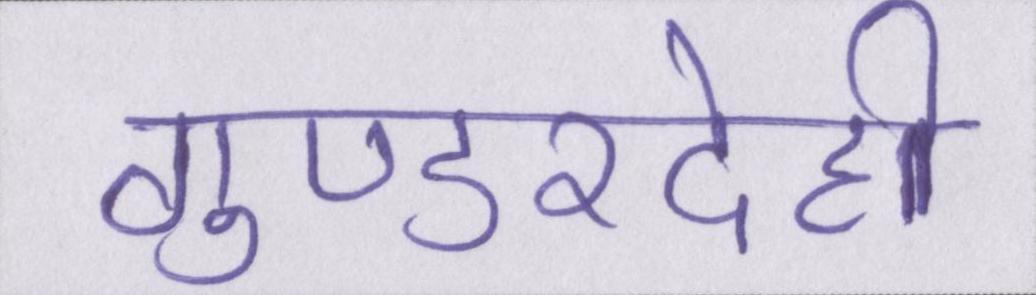 गुण्डरदेही